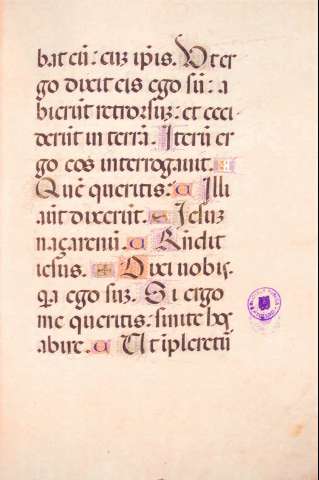 bat cū: cuȝ ip̄is. Vt er
go dixit eis ego sū: a
bierūt retrorsuȝ: et ceci
derūt in terrā. Iterū er
go eos interrogauit.
Quē queritis: a Illi
aūt dixerūt. Iesuȝ
naçarenū. a R̄ndit
iesus. Dixi nobis.
q̄a ego suȝ. Si ergo
me queritis: sinite hos
abire. a Ut ip̄leretū